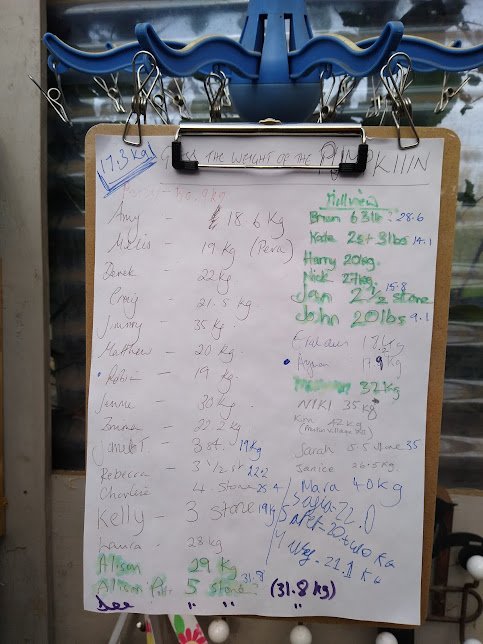 17.3 Kg
GUESS THE WEIGHT OF THE PUMPKIIIN
Amy - 18.6 Kg
19 Kg (Pera)
Derek - 22 Kg
Craig - 21.5 Kg
Jimmy - 35 Kg
Matthew - 20 Kg
Robin - 19 Kg
Jennie - 30 Kg
Emma - 22.2 Kg
3 st. 19 Kg
Rebecca - 3 1/2 st 22.2
Charlie 4. Stone 25.4
Kelly - 3 Stone 19 Kg
Laura - 28 Kg
Alison 29 Kg
Alison 5 Stone 31.8 (31.8 Kg)
Dee " " "
Hillview
Brian 63 lb 28.6
Kate 2st 3lbs 14.1
Harry 20kg.
Nick 27kg.
Jan 2 1/2 stone 15.8
John 20 lbs 9.1
17.2 Kg
17.9 Kg
32 Kg
NIKI 35 Kg
Kim 42 Kg
Sarah 5.5 stone 35
Janice 26.5 Kg
Mara 40 Kg
22.0
21.1 Kg